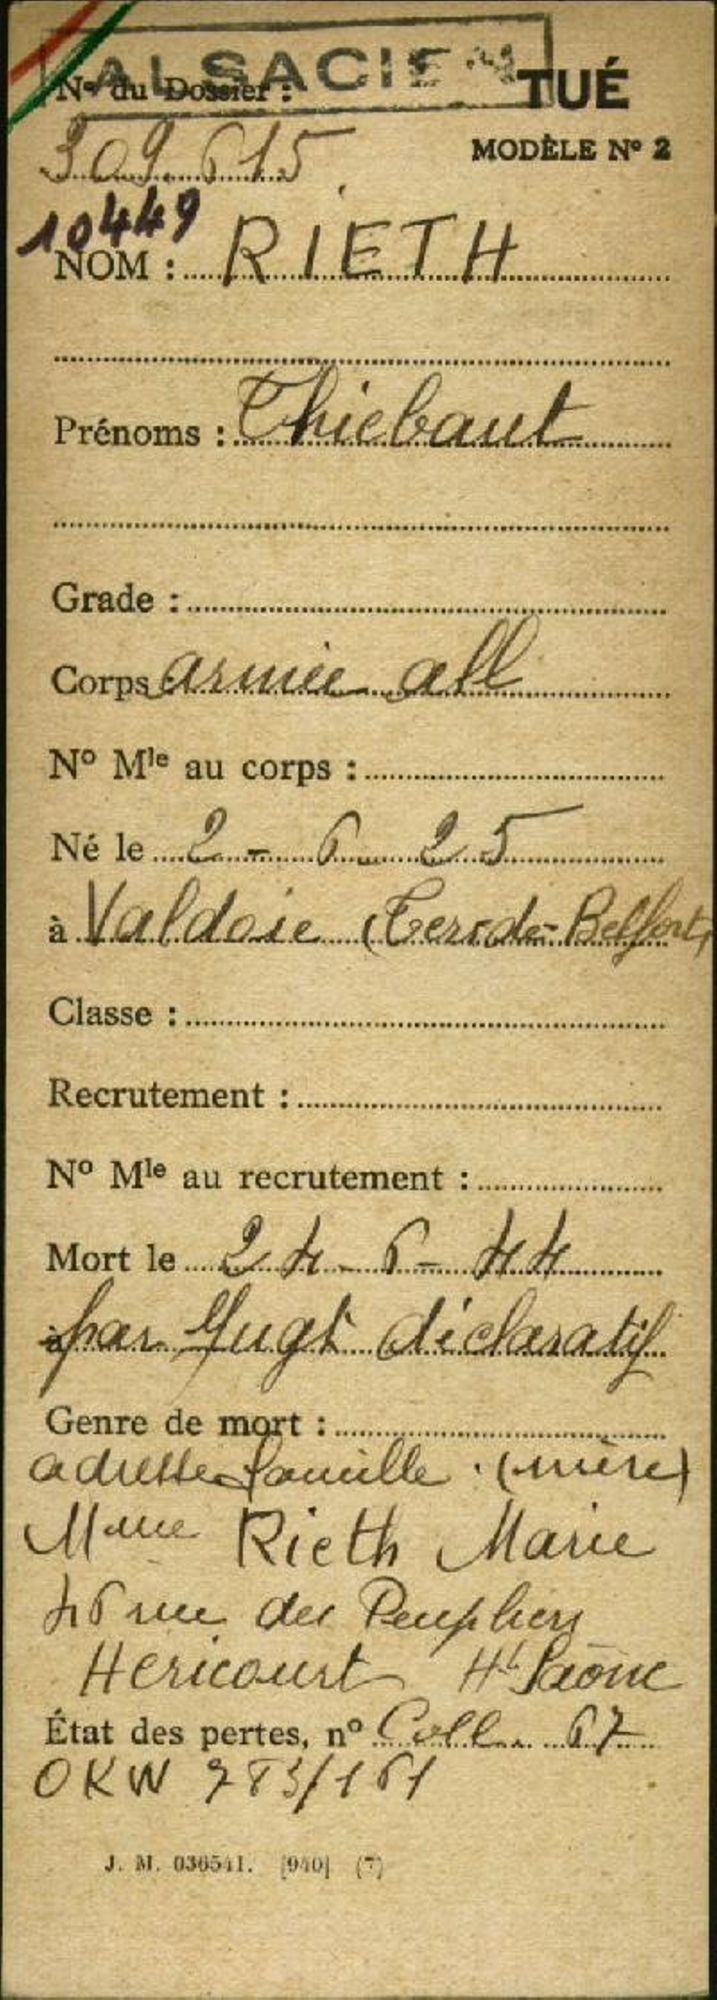 ALSACIEN
N° du Dossier :
TUÉ
309.615
MODÈLE N° 2
10449
NOM : RIETH
Prénoms : Thiebaut
Grade :
Corps : armée all
N° Mle au corps :
Né le 2 - 6 25
à Valdoie (Ter. de Belfort)
Classe :
Recrutement :
N° Mle au recrutement :
Mort le 24-6-44
à par Jugt déclaratif
Genre de mort :
adresse famille (mère)
Mme Rieth Marie
46 rue des Peupliers
Hericourt Hte Saône
État des pertes, n° Coll. 67
OKW 783/161
J. M. 036541. [940] (7)